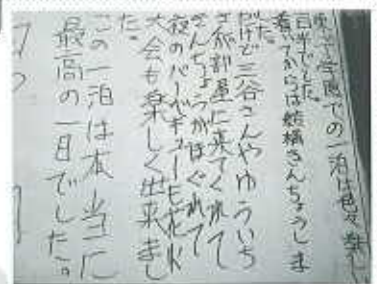 学園での一泊は色々楽しい
日々でした。
着いてからは結構きんちょうしま
した。
だけど三谷さんやゆういち
さんが部屋に来てくれて
きんちょうがほぐれて
夜のバーベキューも花火
大会も楽しく出来まし
た。
この一泊は本当に
最高の一日でした。